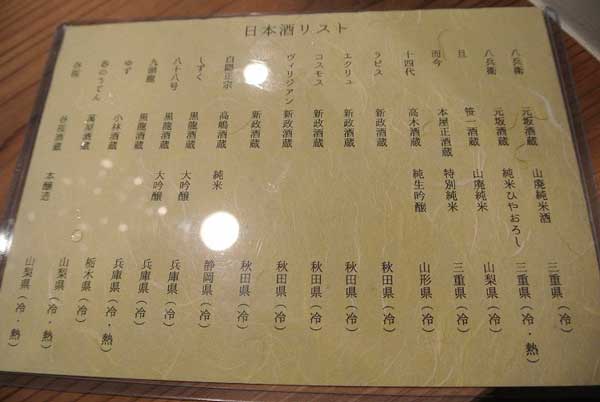 日本酒リスト
八兵衛 元坂酒蔵 山廃純米酒 三重県(冷)
八兵衛 元坂酒蔵 純米ひやおろし 三重県(冷・熱)
旦 笹一酒蔵 山廃純米 山梨県(冷)
而今 本屋正酒蔵 特別純米 三重県(冷)
十四代 高木酒蔵 純生吟醸 山形県(冷)
ラピス 新政酒蔵 秋田県(冷)
エクリュ 新政酒蔵 秋田県(冷)
コスモス 新政酒蔵 秋田県(冷)
ヴィリジアン 新政酒蔵 秋田県(冷)
新政酒蔵 秋田県(冷)
白隠正宗 高嶋酒蔵 純米 静岡県(冷)
しずく 黒龍酒蔵 大吟醸 兵庫県(冷)
八十八号 黒龍酒蔵 大吟醸 兵庫県(冷)
九頭龍 黒龍酒蔵 兵庫県(冷・熱)
ゆず 小林酒蔵 栃木県(冷)
萬屋酒蔵 山梨県(冷・熱)
谷桜 谷桜酒蔵 本醸造 山梨県(冷・熱)